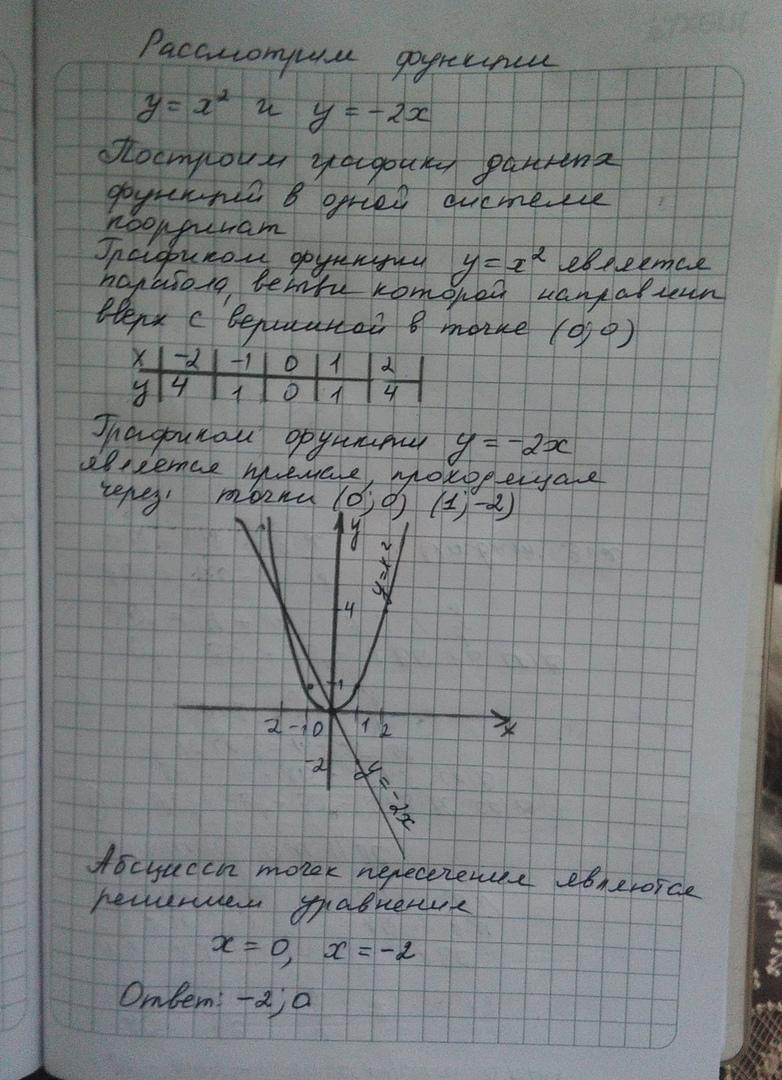 Рассмотрим функции
y = x² и y = -2x
Построим графики данных
функций в одной системе
координат
Графиком функции y = x² является
парабола, ветви которой направлены
вверх с вершиной в точке (0;0)
x | -2 | -1 | 0 | 1 | 2 |
y | 4 | 1 | 0 | 1 | 4 |
Графиком функции y = -2x
является прямая, проходящая
через точки (0;0) (1;-2)
y
y=x²
4
1
-2 -1 0 1 2 x
-2
y=-2x
Абсциссы точек пересечения являются
решением уравнения
x = 0, x = -2
Ответ: -2; 0